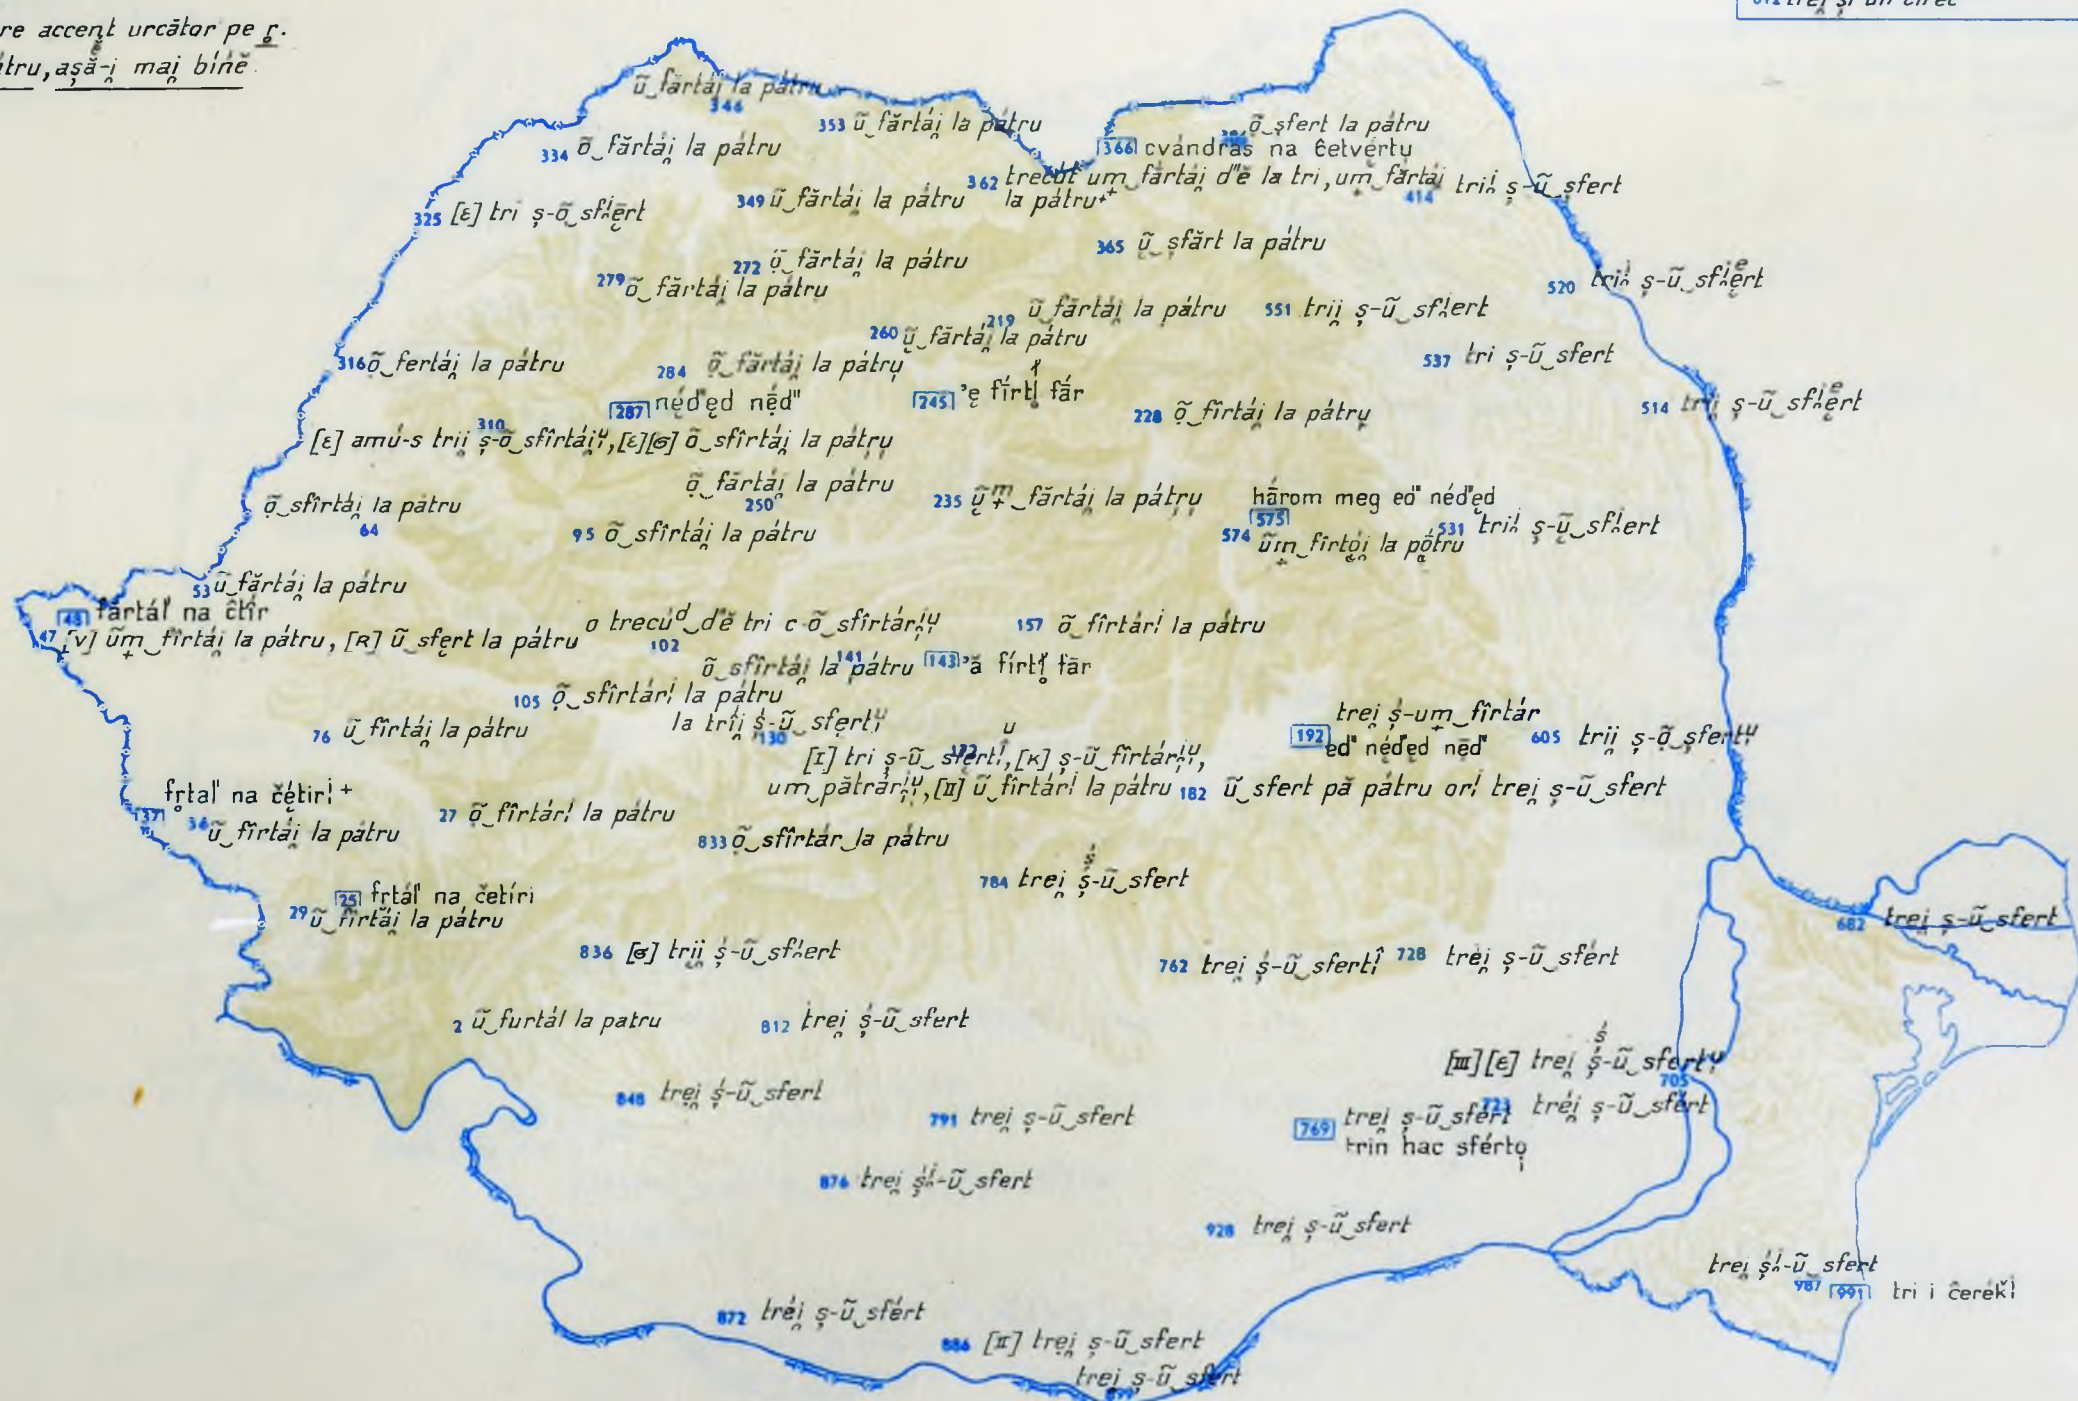 re accent urcător pe r̥.
tru, așă-i̯ mai̯ bine
812 trei̯ și un cirec
ũ‿fărtái̯ la pátru
346
353 ũ‿fărtái̯ la pátru
õ‿șfert la pátru
334 õ‿fărtái̯ la pátru
366 cvándrăs na ĉetvértu
362 trecút um‿fărtái̯ d'ĕ la tri, um‿fărtái̯
la pátru+
414 trii̯ ș-ũ‿sfert
349 ũ‿fărtái̯ la pátru
325 [ε] tri ș-õ‿sfi̯ẹrt
365 ũ̯‿șfărt la pátru
272 õ̯‿fărtái̯ la pátru
279 õ‿fărtái̯ la pátru
520 trii̯ ș-ũ‿sfi̯ẹrt
219 ũ‿fărtái̯ la pátru
551 trii̯ ș-ũ‿sfi̯ert
260 ũ̯‿fărtái̯ la pátru
537 tri ș-ũ‿sfert
316 õ‿fertái̯ la pátru
284 õ̯‿fărtái̯ la pátrụ
287 néd'ẹd nẹ̄d"
245 'ẹ fírtl̥ fár
228 õ̯‿fîrtái̯ la pátrụ
514 trii̯ ș-ũ‿sfi̯ẹrt
310
[ε] amú-s trii̯ ș-õ‿sfîrtái̯ᶙ, [ε][σ] õ‿sfîrtái̯ la pátrụ
õ̯‿fărtái̯ la pátru
250
235 ũ̯ᵐ‿fărtái̯ la pátrụ
három meg ed" néd"ẹd
575
õ̯‿sfîrtái̯ la pátru
64
95 õ‿sfîrtái̯ la pátru
574 ũm‿fîrtǫ́i̯ la pǫ́tru
531 trii̯ ș-ũ̯‿sfi̯ert
53 ũ‿fărtái̯ la pátru
48 fărtál' na ĉtír
47 [V] ũm‿fîrtái̯ la pátru, [R] ũ‿sfẹrt la pátru
o trecúᵈ‿d'ĕ tri c-õ‿sfîrtári̯ᶙ
102
157 õ‿fîrtárí la pátru
õ‿sfîrtái̯ la pátru
141
143 'ă fírtl̥ fār
105 õ̯‿sfîrtárí la pátru
76 ũ‿fîrtái̯ la pátru
la trîi̯ ș́-ũ‿sfẹrtᶙ
130
trei̯ ș́-um‿fîrtár
192 ed" néd'ẹd nẹ̄d"
605 trii̯ ș-õ̯‿șfertᶙ
172
[I] tri ș-ũ‿sfertí, [K] ș-ũ‿fîrtári̯ᶙ,
um‿pătrári̯ᶙ, [II] ũ‿fîrtárí la pátru
182 ũ‿sfert pă pátru orí trei̯ ș-ũ‿sfert
37 fr̥tal' na ĉẹ́tirí +
36 ũ‿fîrtái̯ la pátru
27 õ̯‿fîrtárí la pátru
833 õ̯‿sfîrtár‿la pátru
784 trei̯ ș́-ũ‿sfert
25 fr̥tál' na četíri
29 ũ‿fîrtái̯ la pátru
682 trei̯ ș-ũ‿sfert
836 [σ] trii̯ ș́-ũ‿sfi̯ert
762 trei̯ ș́-ũ‿sfertî
728 trèi̯ ș-ũ‿sfért
2 ũ‿furtál la patru
812 trei̯ ș́-ũ‿sfert
[III][ε] trei̯ ș́-ũ‿sfertᶙ
705
848 trẹi̯ ș́-ũ‿sfert
791 trei̯ ș-ũ‿sfert
723 tréi̯ ș-ũ‿sfért
769 trei̯ ș-ũ‿sfért
trin hac sférto̩
876 trei̯ și̯-ũ‿sfert
928 trei̯ ș-ũ‿sfert
trei̯ și̯-ũ‿sfert
987
991 tri i ĉerékí
872 tréi̯ ș-ũ‿sfért
886 [II] trẹi̯ ș-ũ‿sfert
trei̯ ș-ũ‿sfert
899